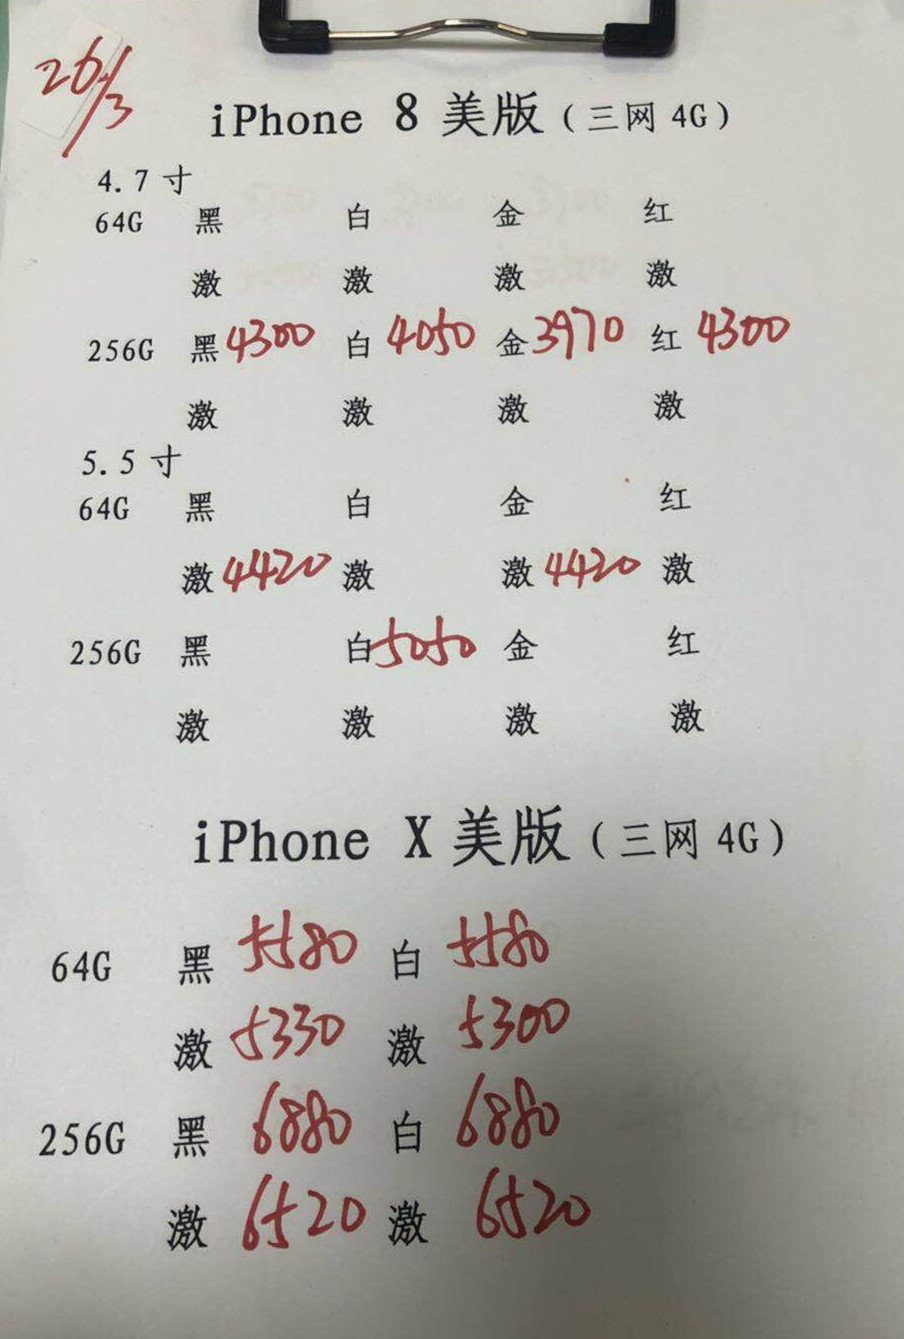 26/3
iPhone 8 美版（三网 4G）
4.7 寸
64G 黑 白 金 红
激 激 激 激
256G 黑 4300 白 4050 金 3970 红 4300
激 激 激 激
5.5 寸
64G 黑 白 金 红
激 4420 激 激 4420 激
256G 黑 白 5050 金 红
激 激 激 激
iPhone X 美版（三网 4G）
64G 黑 5580 白 5580
激 5330 激 5300
256G 黑 6880 白 6880
激 6520 激 6520